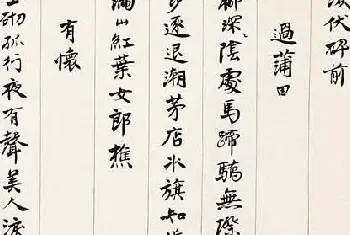 伏碑前
過蒲田
柳深陰處馬蹄驕無際
沙逐退潮茅店冰旗知
滿山紅葉女郎樵
有懷
砌孤行夜有聲美人淚